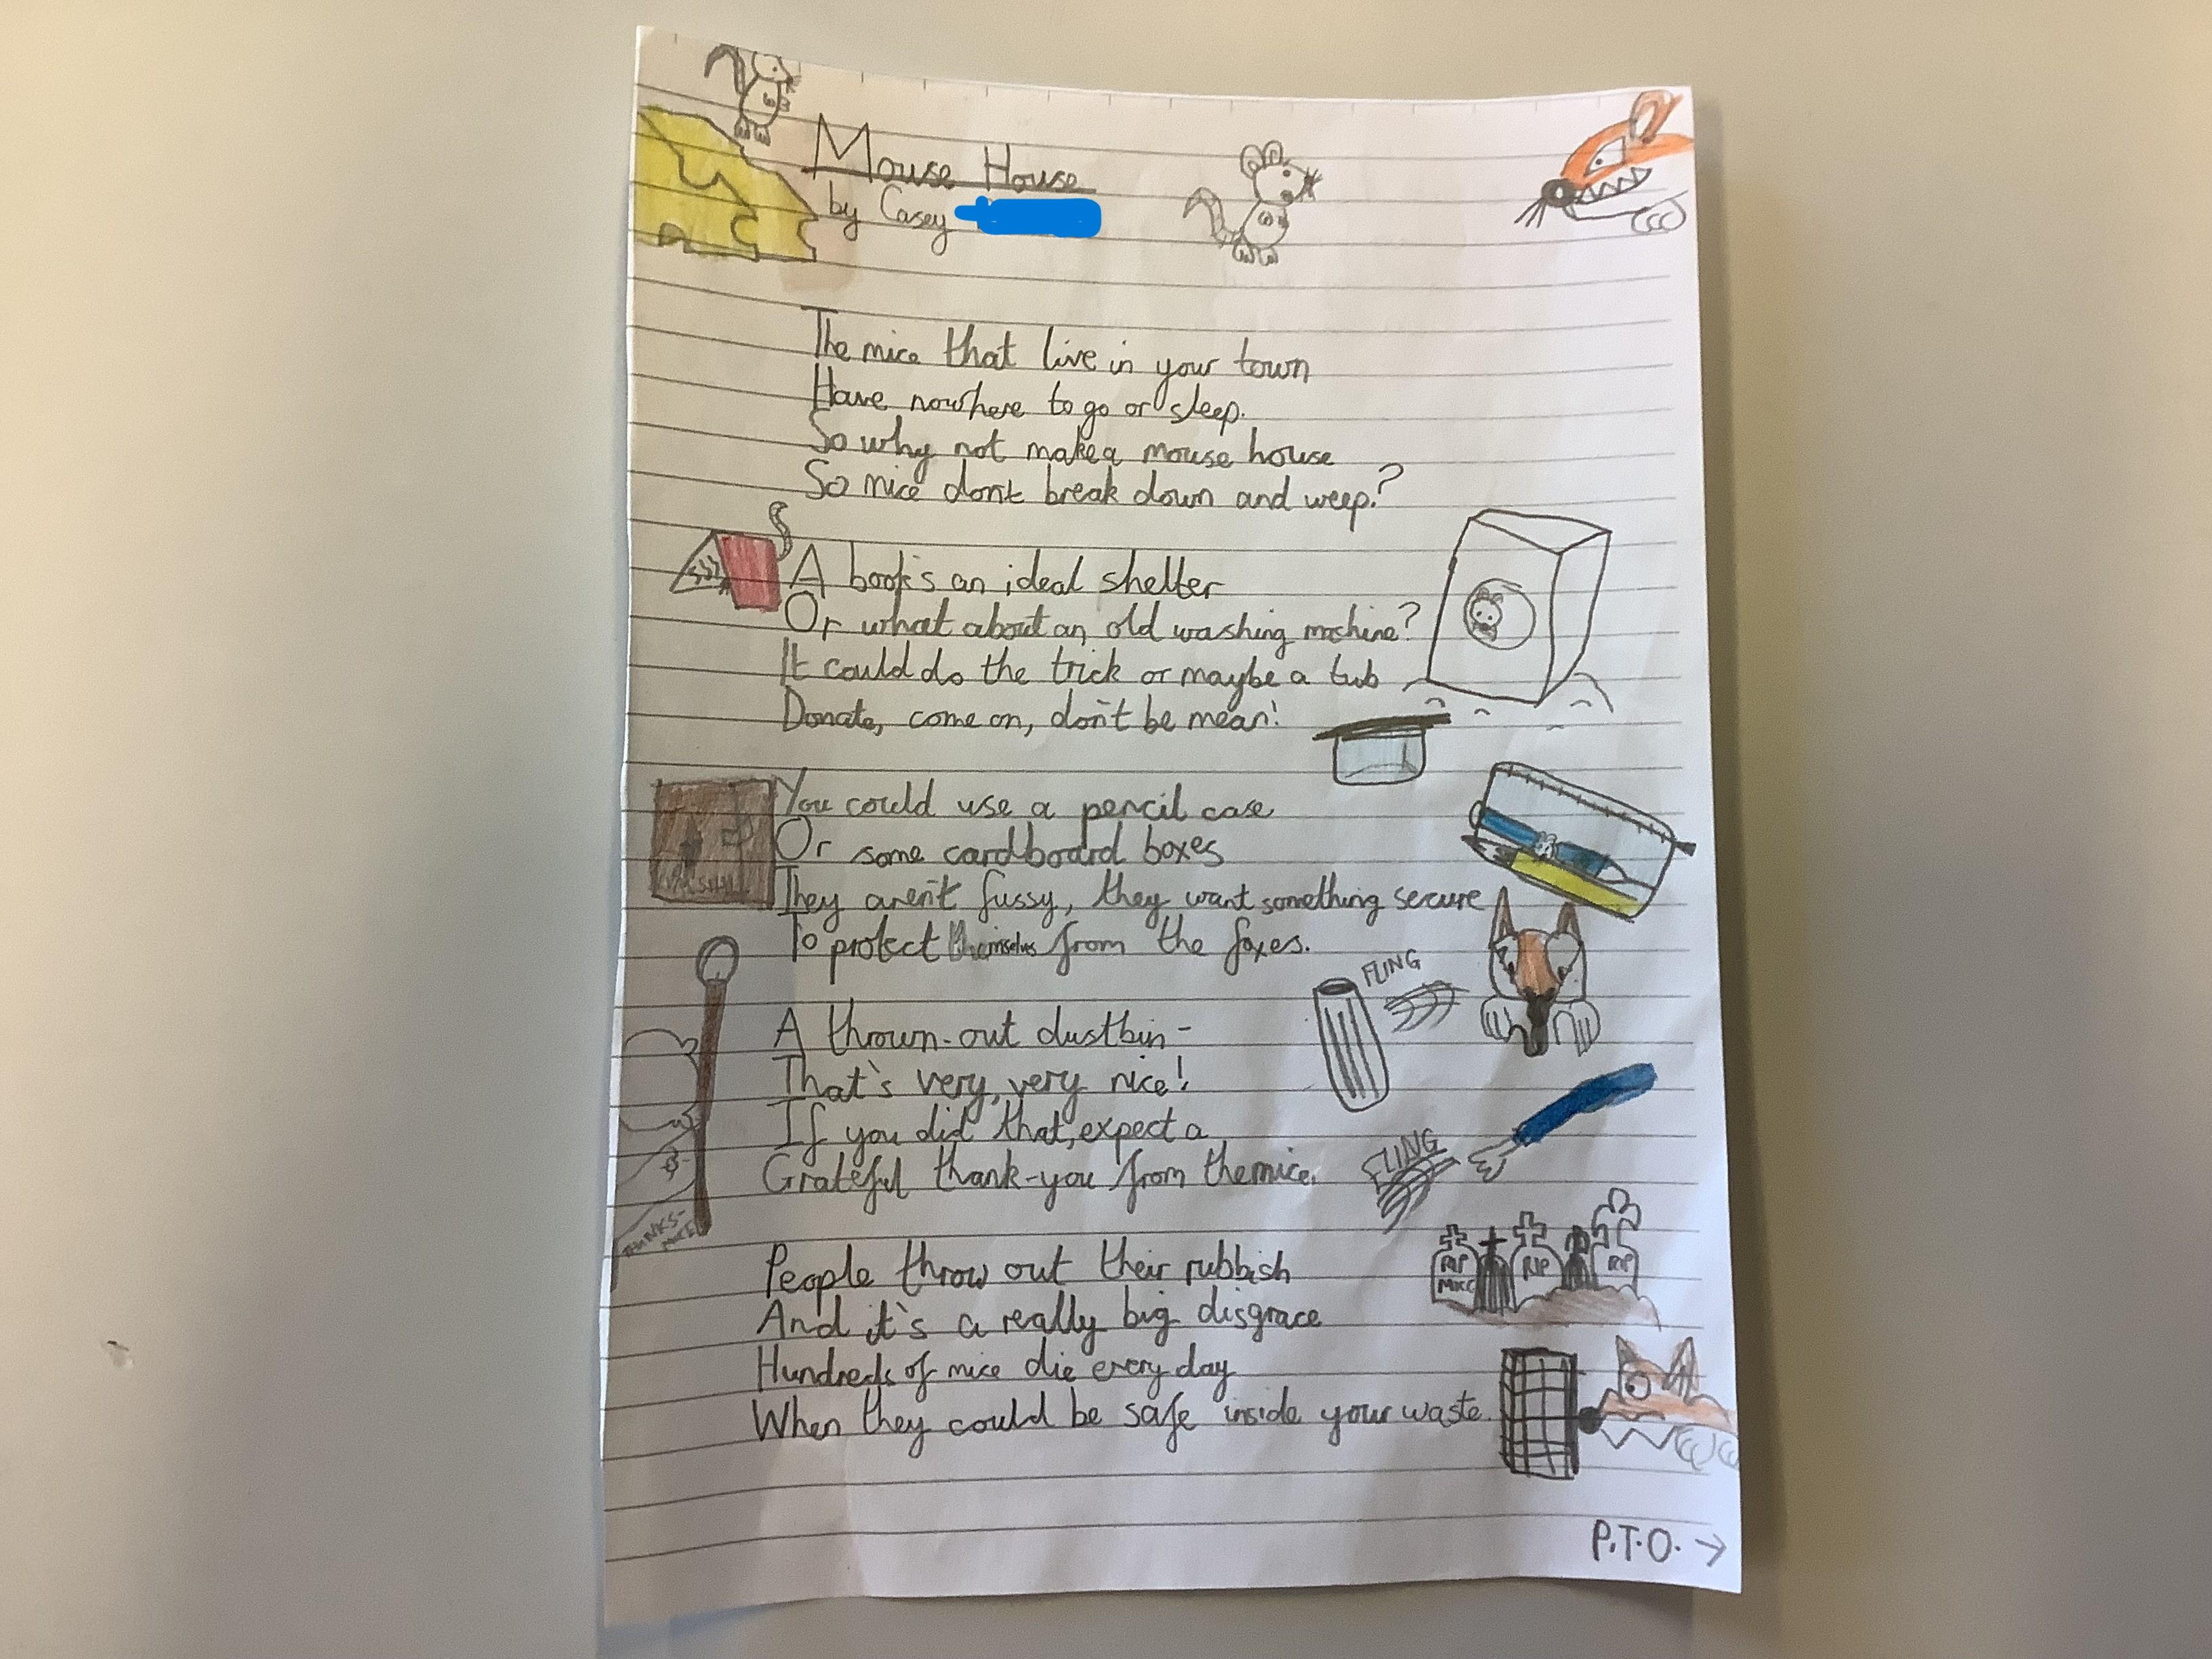 Mouse House
by Casey
The mice that live in your town
Have nowhere to go or sleep.
So why not make a mouse house
So mice don't break down and weep?
A book's an ideal shelter
Or what about an old washing machine?
It could do the trick or maybe a tub
Donate, come on, don't be mean!
You could use a pencil case
Or some cardboard boxes
They aren't fussy, they want something secure
To protect themselves from the foxes.
FLING
A thrown-out dustbin-
That's very, very nice!
If you did that, expect a
Grateful thank-you from the mice.
FLING
THANKS-
MICE
People throw out their rubbish
And it's a really big disgrace
Hundreds of mice die every day
When they could be safe inside your waste.
RIP
MICE
RIP
RIP
P.T.O. →